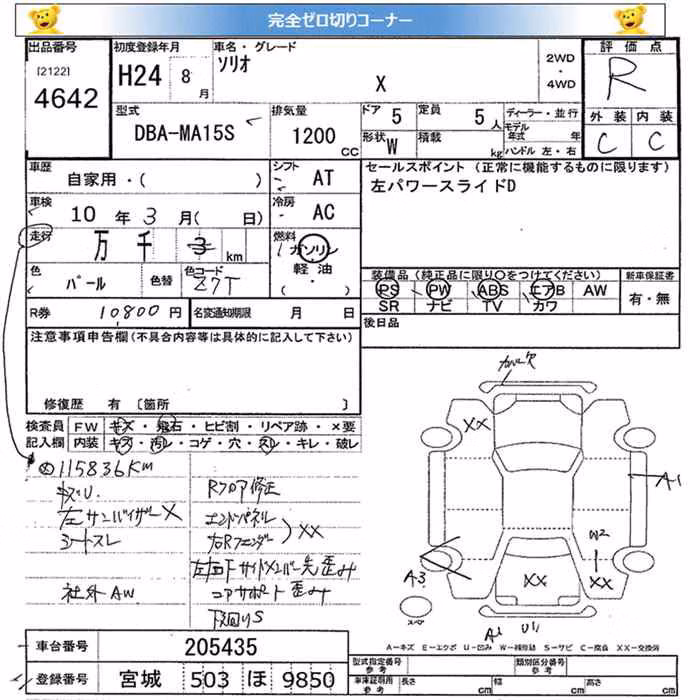 完全ゼロ切りコーナー
出品番号 初度登録年月 車名・グレード 評価点
[2122] 4642 H24 8月 ソリオ X 2WD・4WD R
型式 排気量 ドア 5 定員 5人 ディーラー・並行 外装 内装
DBA-MA15S 1200CC 形状 W 積載 kg モデル年式 年 C C
ハンドル 左・右
車歴 自家用・( ) シフト AT セールスポイント (正常に機能するものに限ります)
車検 10年3月( 日) 冷房 AC 左パワースライドD
走行 万 千 3 km 燃料 ガソリン 軽油・( )
色 パール 色替 色コード Z7T 装備品 (純正品に限り〇をつけてください) 新車保証書
PS PW ABS エアB AW 有・無
SR ナビ TV カワ
R券 10,800円 名変通知期限 月 日 後日品
注意事項申告欄(不具合内容等は具体的に記入して下さい)
修復歴 有 [箇所 ]
検査員 FW キズ・飛石・ヒビ割・リペア跡・×要
記入欄 内装 キズ・汚レ・コゲ・穴・スレ・キレ・破レ
115836km
キズU. Rフロア修正
左サンバイザーX エンドパネル
シートスレ 右Rフェンダー XX
左右F サイドメンバー先歪み
社外AW コアサポート歪み
下回りS
カバー欠
XX
A1
W2
A3 XX XX
スペア
A2 U1
A-キズ E-エクボ U-凹み W-補修跡 S-サビ C-腐食 XX-交換済
車台番号 205435
登録番号 宮城 503 ほ 9850
型式指定番号 参考 類別区分番号 参考
車庫証明用 参考 長さ cm 幅 cm 高さ cm